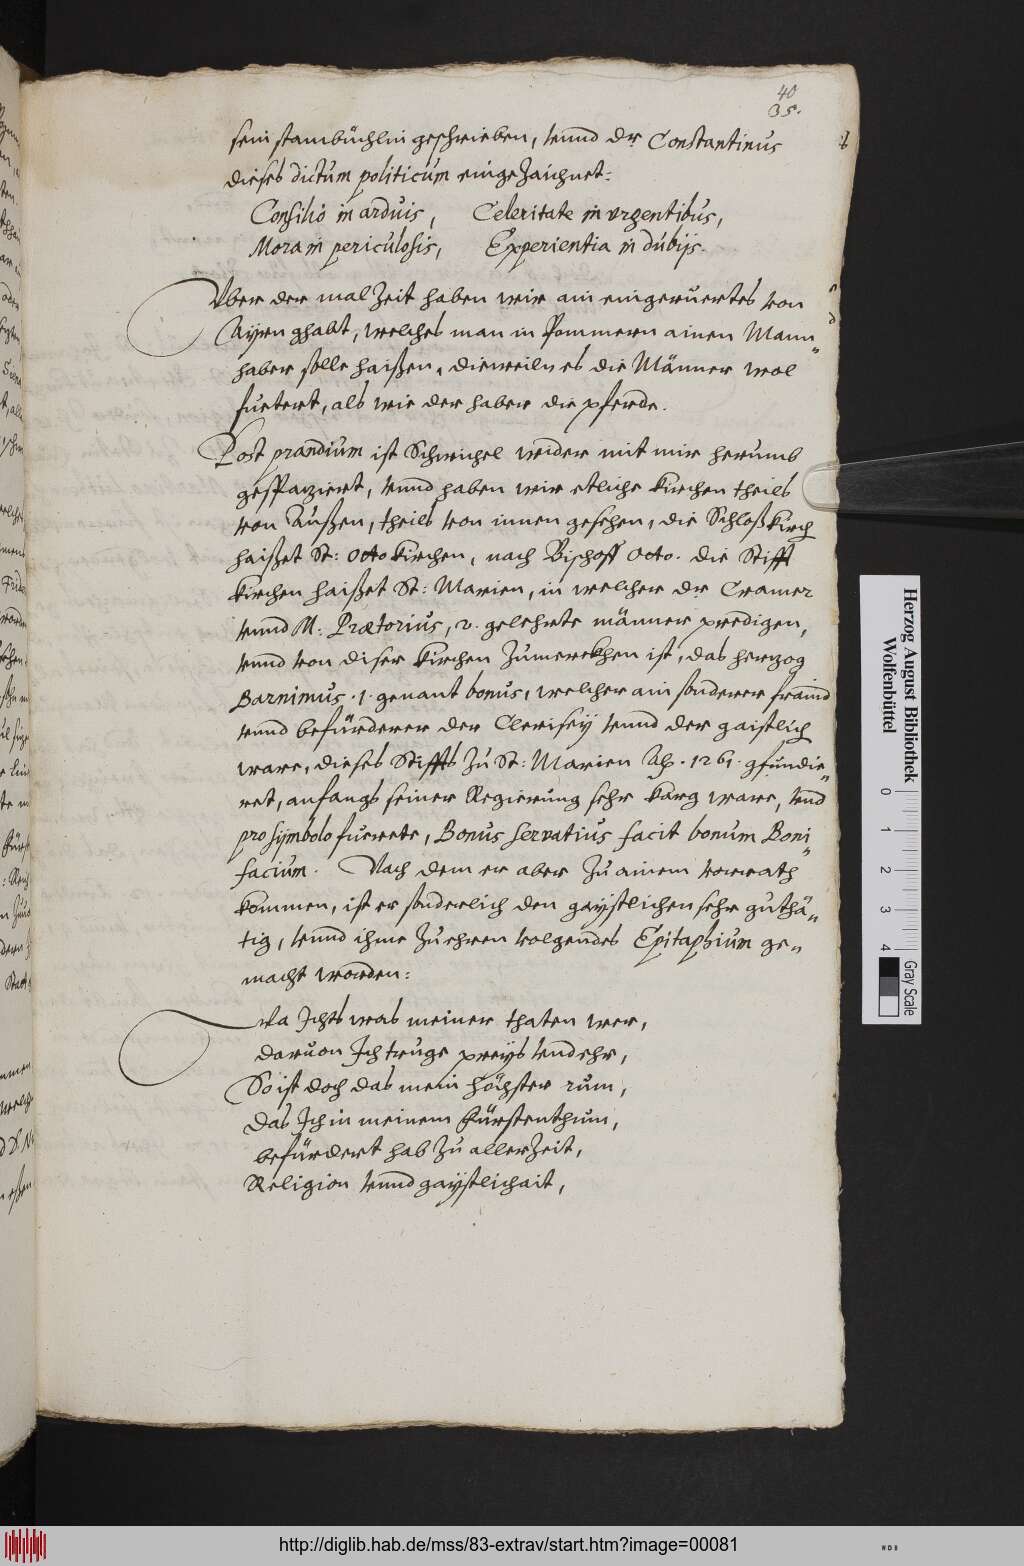 40
35.
sein stambüchlin geschrieben, vnnd dr Constantinus
dieses dictum politicum eingezaichnet:
Consilio in arduis, Celeritate in vrgentibus,
Mora in periculosis, Experientia in dubijs.
Vber der malzeit haben wir ain eingeruertes von
Ayrn ghabt, welches man in Pommern ainen Mann„
haber solle haißen, dieweiln es die Männer wol
fuetert, als wie der haber die pferde.
Post prandium ist Schwichel wider mit mir herumb
gespaziert, vnnd haben wir etliche Kirchen theils
von Außen, theils von innen gesehen, die Schloßkirch
haißet St: Otto Kirchen, nach Bischoff Otto. die Stifft
Kirchen haißet St: Marien, in welcher dr Cramer
vnnd M: Prætorius, 2. gelehrte männer predigen,
vnnd von diser Kirchen zumerckhen ist, das herzog
Barnimus .1. genant bonus, welcher ain sonderer fraind
vnnd befürderer der Clerisey vnnd der gaistlich
ware, dieses Stiffts zu St: Marien Ao. 1261. gfundie„
ret, anfangs seiner Regierung sehr karg ware, vnd
pro symbolo fuerete, Bonus Servatius facit bonum Boni„
facium. Nach dem er aber zu ainem vorrath
kommen, ist er sonderlich den gaystlichen sehr guthä„
tig, vnnd ihme zu ehren volgendes Epitaphium ge„
macht worden:
Da Ichts was meiner thaten wer,
daruon Ich truge preys vnd ehr,
So ist doch das mein höchster rum,
das Ich in meinem Fürstenthum,
befürdert hab zu aller Zeit,
Religion vnnd gaystlichait,
Herzog August Bibliothek
Wolfenbüttel
0 1 2 3 4
Gray Scale
http://diglib.hab.de/mss/83-extrav/start.htm?image=00081